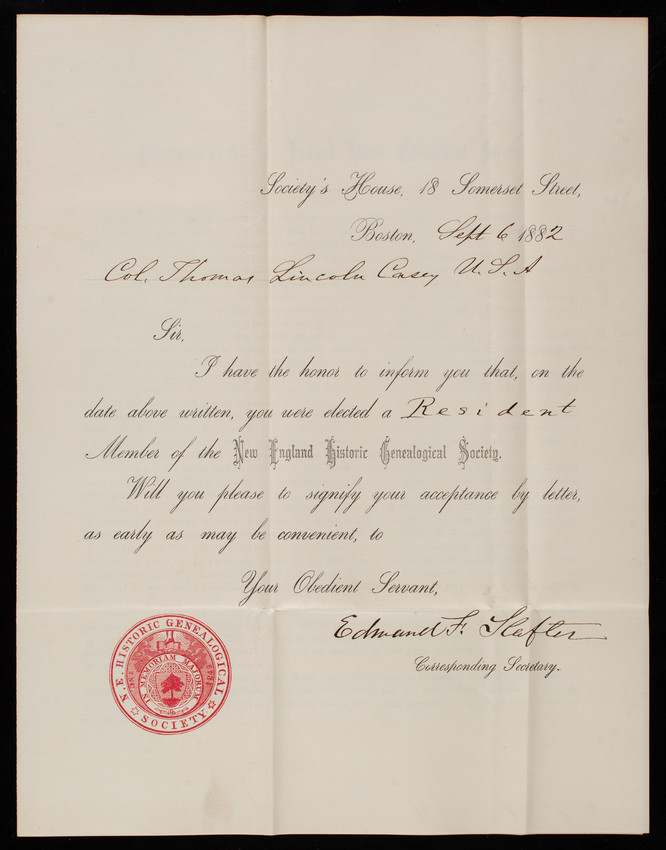 Society's House, 18 Somerset Street,
Boston, Sept 6 1882
Col. Thomas Lincoln Casey U.S.A
Sir,
I have the honor to inform you that, on the
date above written, you were elected a Resident
Member of the New England Historic Genealogical Society.
Will you please to signify your acceptance by letter,
as early as may be convenient, to
Your Obedient Servant,
Edmund F. Slafter
Corresponding Secretary.
N. E. HISTORIC GENEALOGICAL
SOCIETY
IN MEMORIAM MAJORUM